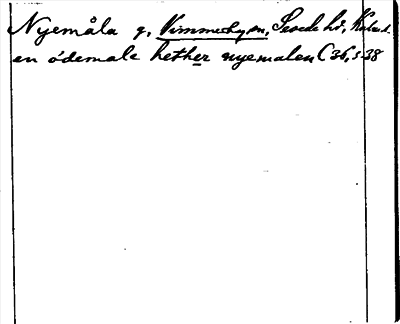 Nyemåla g, Vimmerby sn, Sevede hd, Kalm. l.
en ödemale hether nyemalen C 36, s. 38